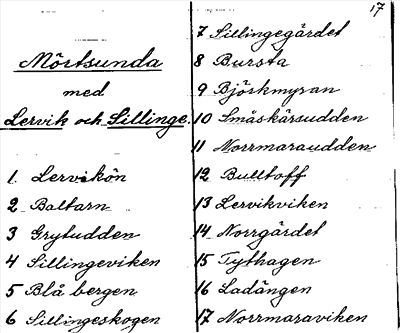 Mörtsunda
med
Lervik och Sillinge.
1. Lervikön
2 Baltarn
3 Grytudden
4 Sillingeviken
5 Blå bergen
6 Sillingeskogen
17
7 Sillingegärdet
8 Bursta
9 Björkmyran
10 Småskärsudden
11 Norrmaraudden
12 Bulltoff
13 Lervikviken
14 Norrgärdet
15 Tythagen
16 Ladängen
17 Norrmaraviken